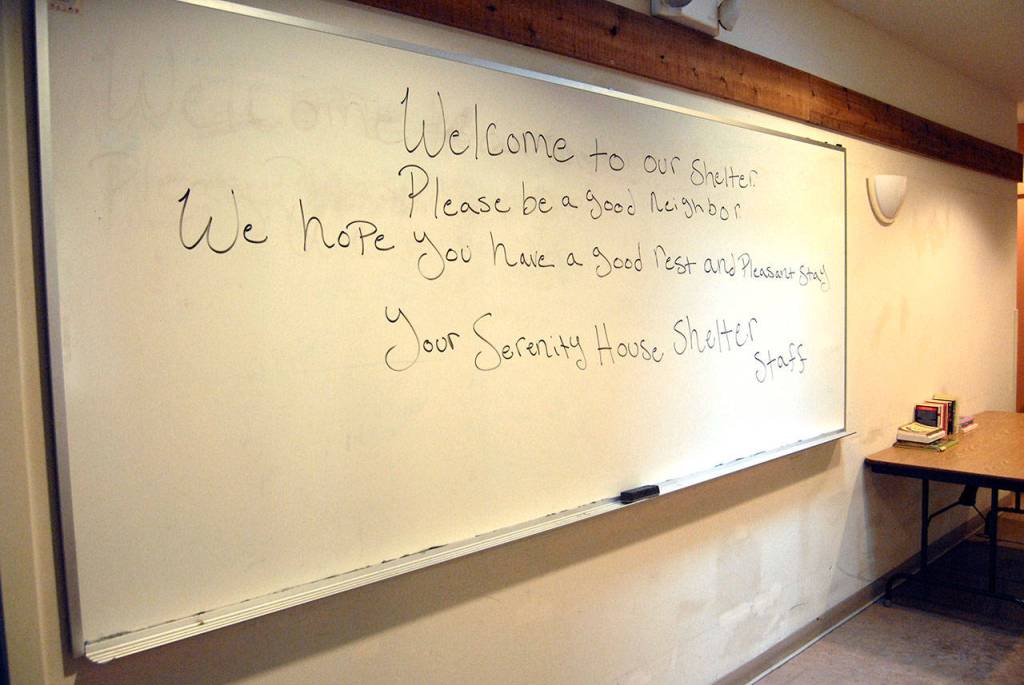 Welcome to our Shelter.
Please be a good neighbor
We hope you have a good rest and Pleasant stay
Your Serenity House Shelter
Staff
Welcome